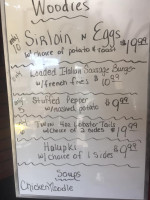 Woodies
Sirloin N Eggs
w/choice of potato & toast $19.99
Loaded Italian Sausage Burger
w/french fries $10.99
Stuffed Pepper $9.99
w/mashed potato
Twin 4oz Lobster Tails
w/choice of 2 sides $19.99
Halupki $9.99
w/choice of 2 sides
Soups
Chicken Noodle